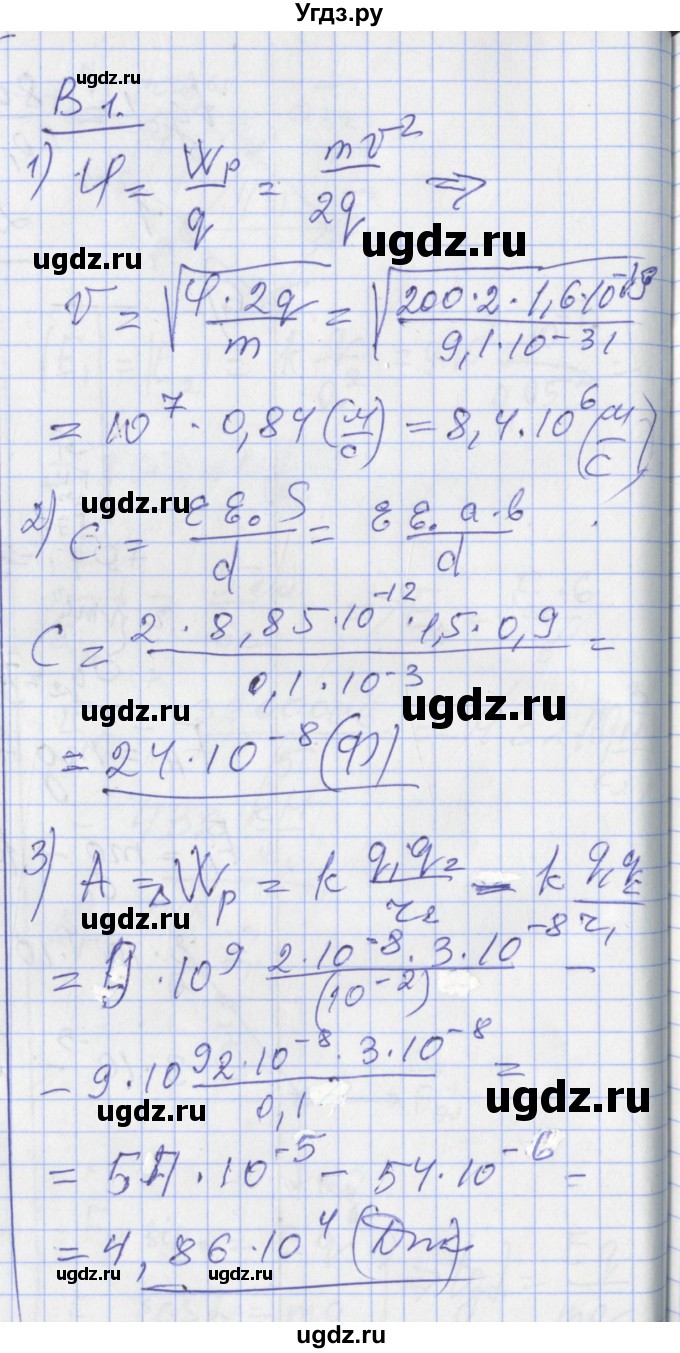 Угдз.ру
ugdz.ru
В 1.
1) φ = Wp/q = mv²/2q ⇒
ugdz.ru
ugdz.ru
v = √(φ·2q/m) = √(200·2·1,6·10⁻¹⁹/9,1·10⁻³¹)
= 10⁷·0,84(м/с) = 8,4·10⁶(м/с)
ugdz.ru
ugdz.ru
2) C = εε₀S/d = εε₀a·b/d
C = 2·8,85·10⁻¹²·1,5·0,9/0,1·10⁻³ =
ugdz.ru
ugdz.ru
= 24·10⁻⁸(Ф)
3) A = ΔWp = k q₁q₂/r₂ − k q₁q₂/r₁
= 9·10⁹ 2·10⁻⁸·3·10⁻⁸/(10⁻²) −
− 9·10⁹ 2·10⁻⁸·3·10⁻⁸/0,1 =
ugdz.ru
ugdz.ru
= 54·10⁻⁵ − 54·10⁻⁶ =
= 4,86·10⁴(Дж)
ugdz.ru
ugdz.ru
ugdz.ru